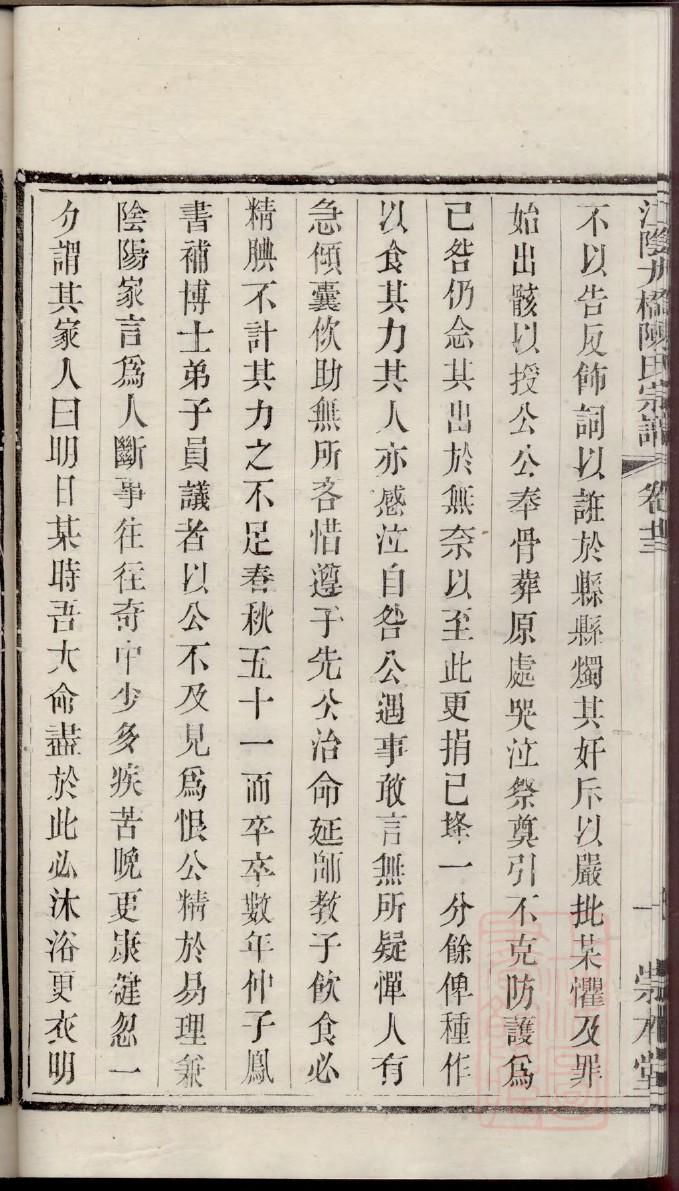 江陰九橋陳氏宗譜 卷廿三 一 崇本堂
不以告反飾詞以誑於縣縣燭其奸斥以嚴批某懼及罪
始出骸以授公公奉骨葬原處哭泣祭奠引不克防護爲
已咎仍念其出於無奈以至此更捐已墶一分餘俾種作
以食其力其人亦感泣自咎公遇事敢言無所疑憚人有
急傾囊佽助無所吝惜遵子先公治命延師教子飲食必
精腆不計其力之不足春秋五十一而卒卒數年仲子鳳
書補博士弟子員議者以公不及見爲恨公精於易理兼
陰陽家言爲人斷事往往奇中少多疾苦晚更康健忽一
夕謂其家人曰明日某時吾大命盡於此必沐浴更衣明